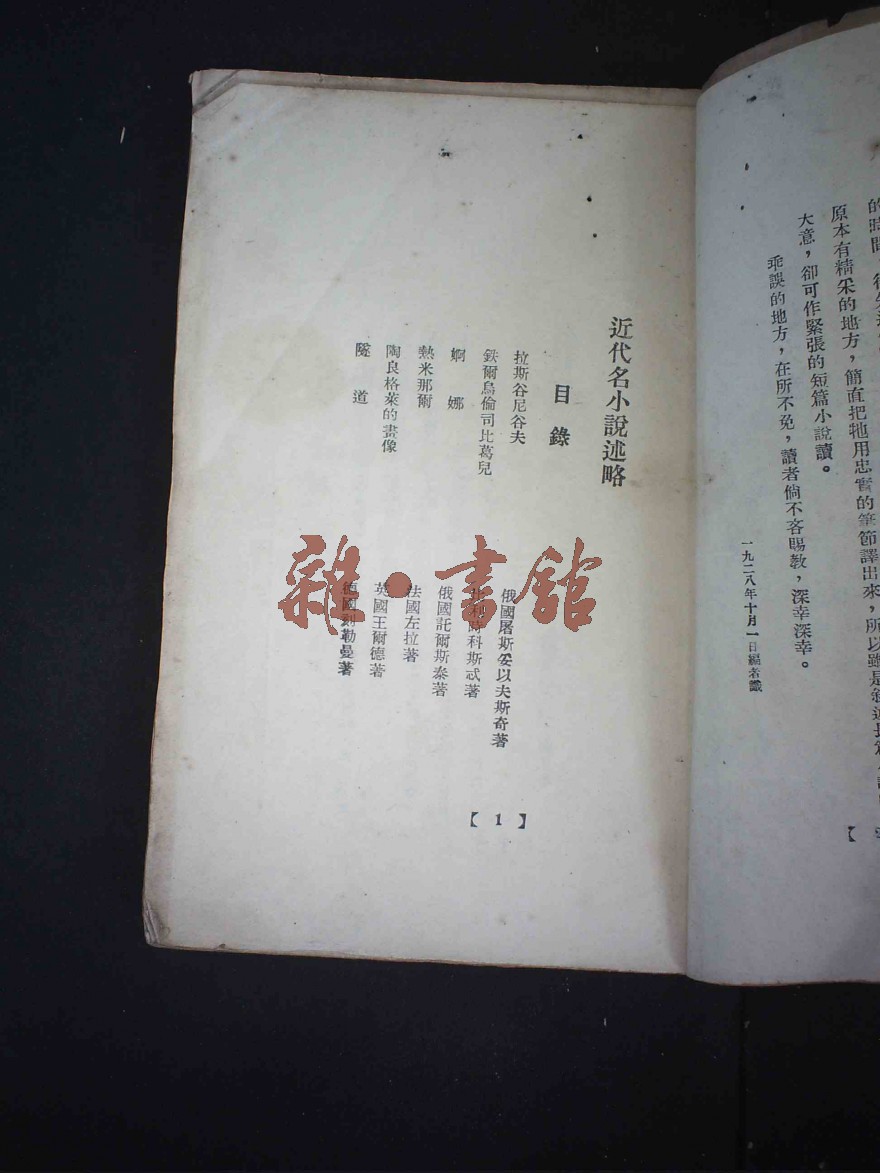 的時間
原本有精采的地方，簡直把牠用忠實的筆節譯出來，所以雖是敍述長篇小說
大意，卻可作緊張的短篇小說讀。
乖誤的地方，在所不免，讀者倘不吝賜教，深幸深幸。
一九二八年十月一日編者識
近代名小說述略
目錄
拉斯谷尼谷夫 俄國屠斯妥以夫斯奇著
鉄爾烏倫司比葛兒 時科斯忒著
婀娜 俄國託爾斯泰著
熱米那爾 法國左拉著
陶良格萊的畫像 英國王爾德著
隧道 德國刻勒曼著
【1】
雜·書館